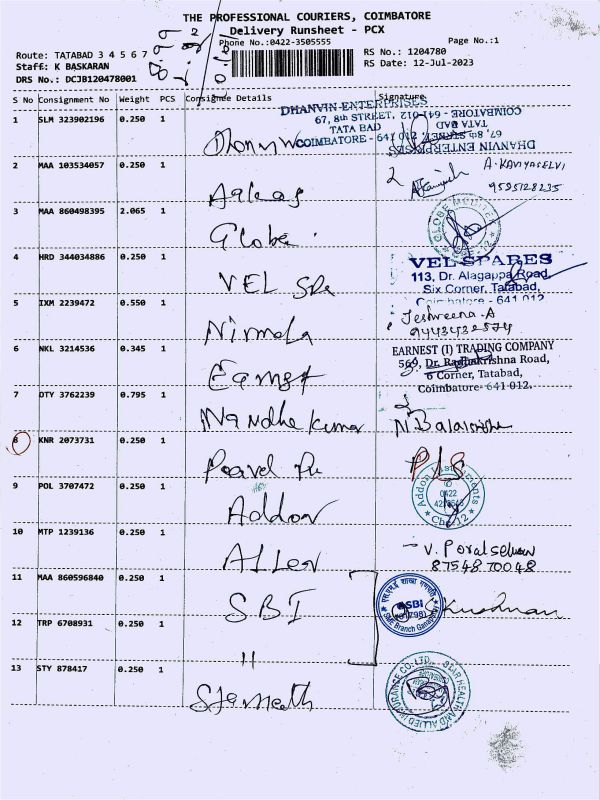 THE PROFESSIONAL COURIERS, COIMBATORE
Delivery Runsheet - PCX
Phone No.:0422-3505555 Page No.:1
Route: TATABAD 3 4 5 6 7 RS No.: 1204780
Staff: K BASKARAN RS Date: 12-Jul-2023
DRS No.: DCJB120478001
S No Consignment No Weight PCS Consignee Details Signature
1 SLM 323902196 0.250 1
DHANVIN ENTERPRISES
67, 8th STREET,
TATA BAD
COIMBATORE - 641 012
2 MAA 103534057 0.250 1 A. KAVIYASELVI
9595128235
3 MAA 860498395 2.065 1 Globe
4 HRD 344034886 0.250 1 VEL
VEL SPARES
113, Dr. Alagappa Road,
Six Corner, Tatabad,
Coimbatore - 641 012
5 IXM 2239472 0.550 1 Nirmala
6 NKL 3214536 0.345 1 Earnest
EARNEST (I) TRADING COMPANY
569, Dr. Radhakrishna Road,
6 Corner, Tatabad,
Coimbatore- 641 012.
7 DTY 3762239 0.795 1 Nandha Kumar
8 KNR 2073731 0.250 1
9 POL 3707472 0.250 1 Addon
Addon Instruments
0422
Cbe-12
10 MTP 1239136 0.250 1 Allen V. Poralselvan
8754870048
11 MAA 860596840 0.250 1 SBI
SBI
SME Branch
12 TRP 6708931 0.250 1 "
13 STY 878417 0.250 1
STAR HEALTH AND ALLIED INSURANCE CO. LTD.